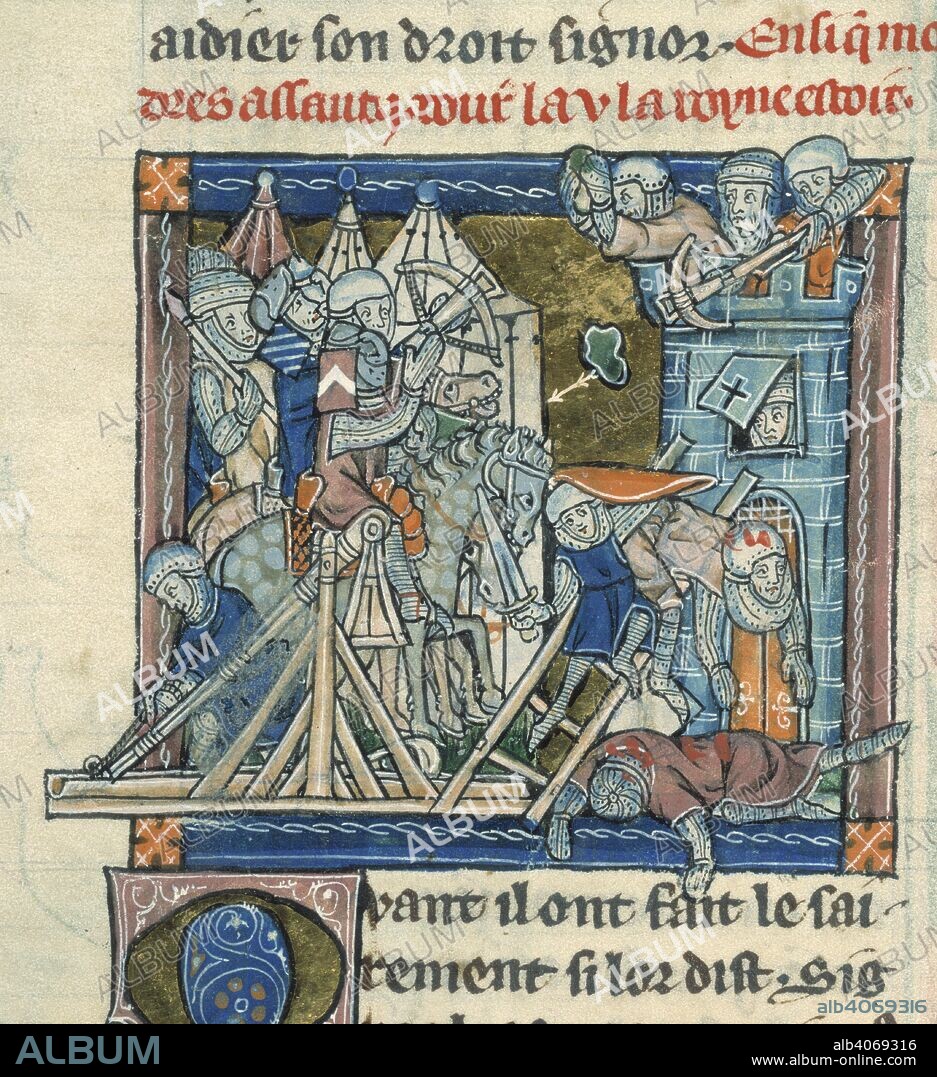 aidier son droit signor. Ensi q̃ mo
dres assaut la v la royne estoit.
vant il ont fait le sai-
rement si lor dist. Sig
alb4069316
ALBUM
alb4069316
www.album-online.com